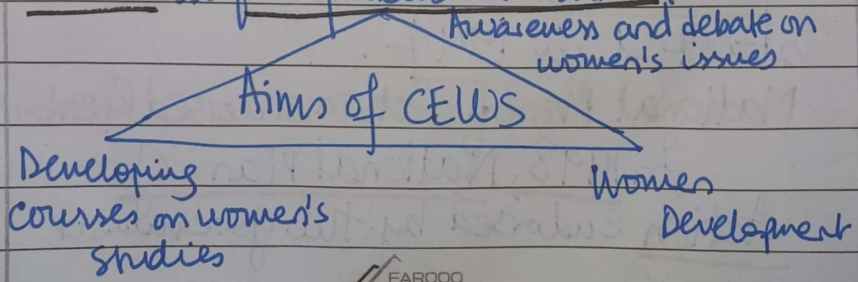 Awareness and debate on
women's issues
Aims of CEWS
Developing
courses on women's
studies
Women
Development
FAROOQ